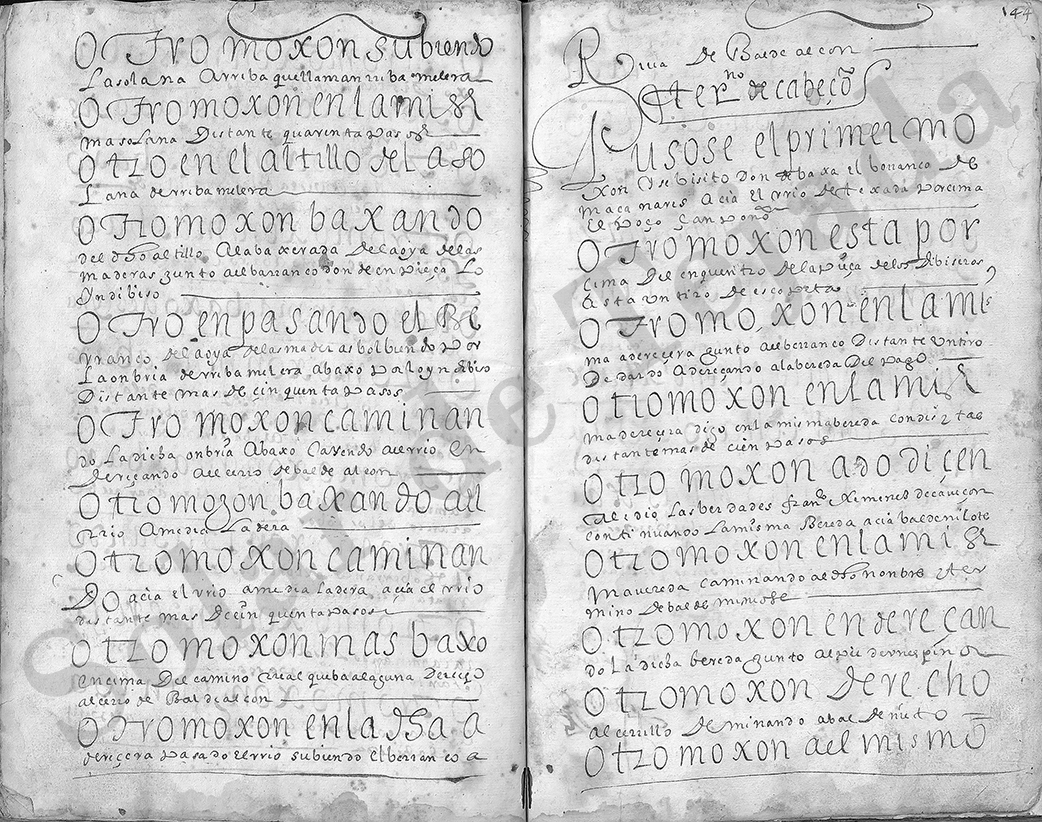 Otro moxon subiendo
La solana Arriba que llaman riba melera
Otro moxon en la mis
ma solana Distante quarenta pasos
Otro en el altillo de la so
Lana de rriba melera
Otro moxon baxando
del dho altillo A la baxerada De la oya de las
maderas junto al barranco donde enpieça Lo
yndibiso
Otro en pasando el Ba
rranco de la oya de las maderas bolbiendo Por
La onbria de rriba melera abaxo Para lo yndibiso
Distante mas de cinquenta Pasos
Otro moxon caminan
do La dicha onbria Abaxo al rrio En
Dereçando Al cerro de balde alcon
Otro moxon baxando al
rrio A media Ladera
Otro moxon caminan
Do açia el rrio a media ladera açia el rrio
distante mas de cinquenta pasos
Otro moxon mas baxo
encima Del camino rreal que ba a laguna Dereço
al cerro de Baldealcon
Otro moxon en la dha a
dereçera Pasado el rrio subiendo el barranco a
144
Riva de Balde alcon
Ter.no de cabeço
Pusose el primer mo
xon Dibisito Donde baxa el barranco de
maçanares Açia El rrio de texada Por cima
El Poço
Otro moxon esta por
cima Del enquentro De la Pieça de los Dibiseros
Asta un tiro de escopeta
Otro moxon en la mis
ma adereçera junto al barranco Distante un tiro
De dardo Adereçando a la bereda Del Pago
Otro moxon en la mis
ma dereçera digo en la misma bereda
distante mas de cien Pasos
Otro moxon ado diçen
Las berdades fran.co Ximenes de cavecon
continuando La misma Bereda açia baldenilote
Otro moxon en la mis
ma vereda caminando al dho nonbre y ter
mino De bal de
Otro moxon endereçan
do La dicha bereda junto al pie de un espin
Otro moxon derecho
al cerrillo De minando a bal de
Otro moxon a el mismo
Solar de Tejada